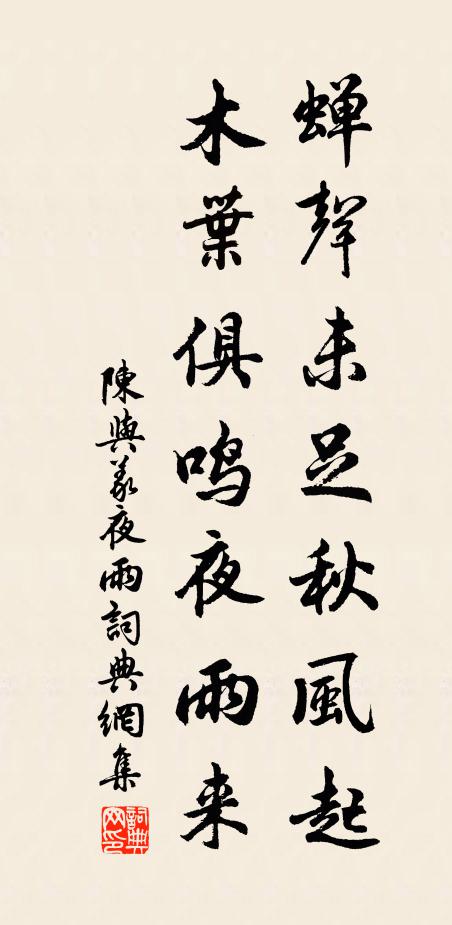 蟬聲未足秋風起
木葉俱鳴夜雨来
陳與義夜雨詞典網集
詞典
网印